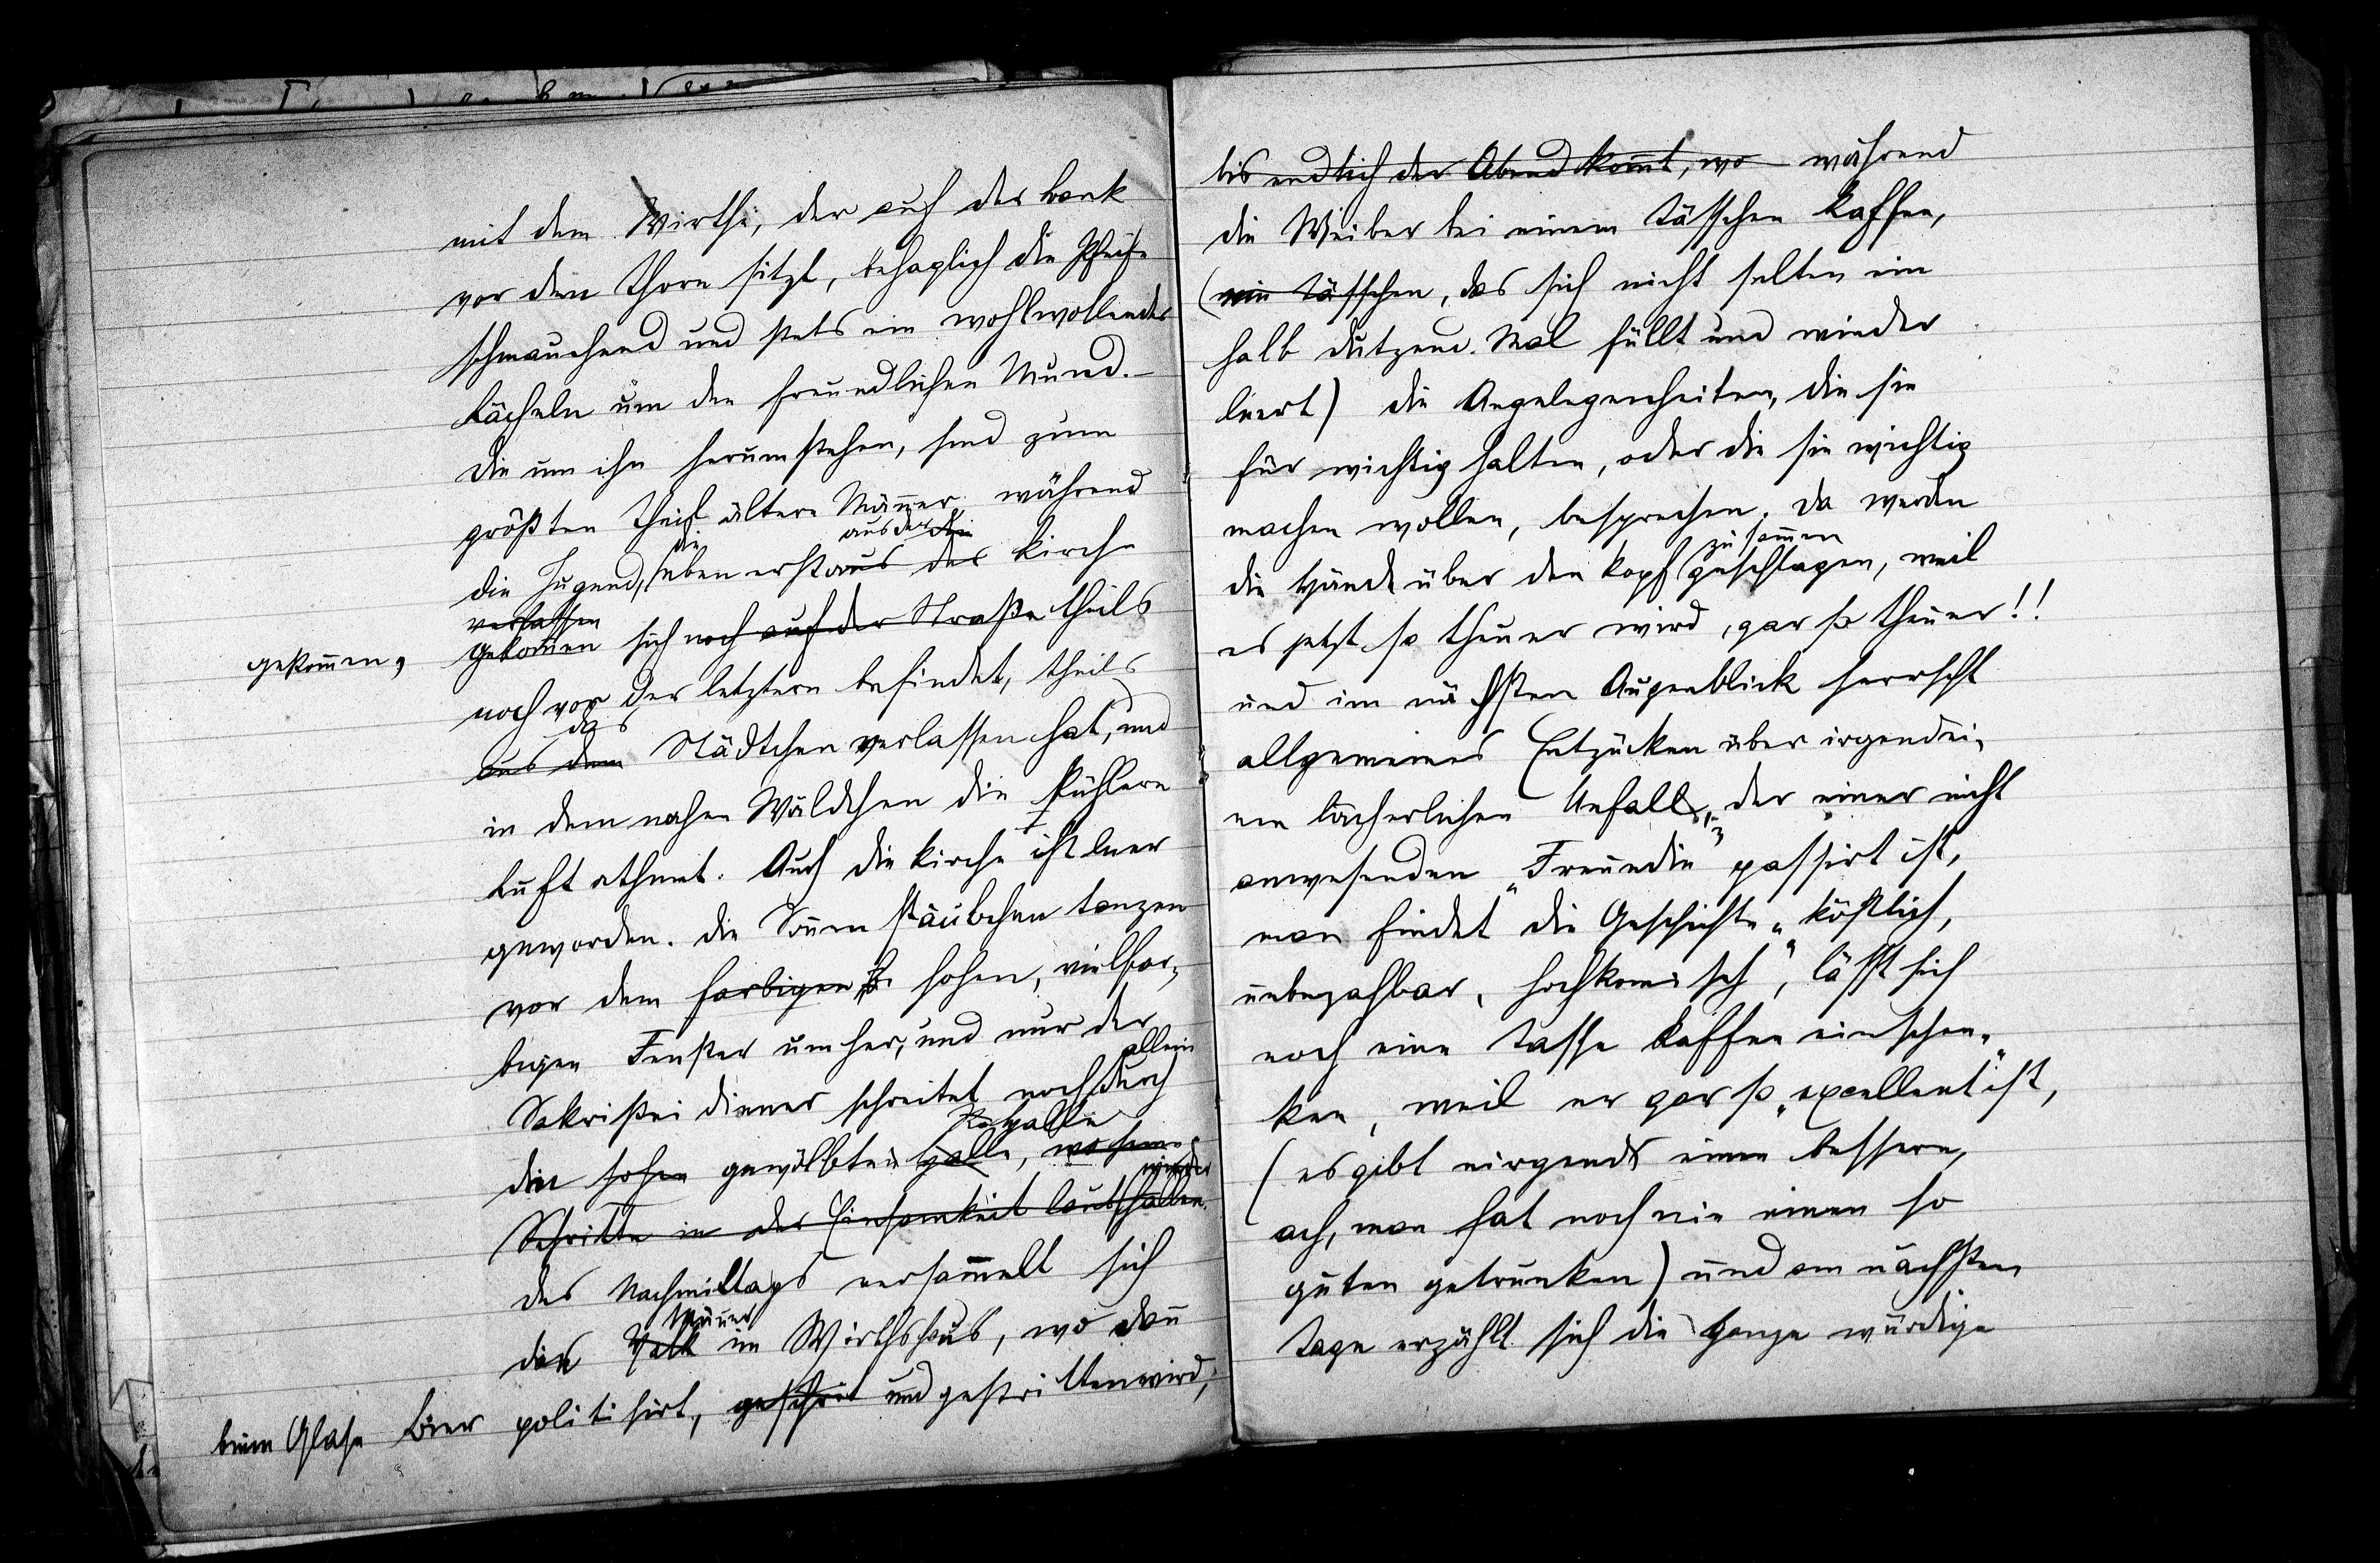 mit dem Wirthe, der auf der Bank
vor dem Thore sitzt, behaglich die Pfeife
schmauchend und stets ein wohlwollendes
Lächeln um den freundlichen Mund. –
Die um ihn herumstehen, sind zum
größten Theil ältere Männer, während
die aus der die
die Jugend, eben erst aus der Kirche
verlassen
gekommen, gekommen sich noch auf der Straße theils
noch vor der letztern befindet, theils
das
aus dem Städtchen verlassen hat, und
in dem nahen Wäldchen die kühlere
Luft athmet. Auch die Kirche ist leer
geworden. Die Sonnenstäubchen tanzen
vor dem farbigen hohen, vielfar-
bigen Fenster umher, und nur der
allein
Sakristeidiener schreitet noch durch
Halle
die hohe gewölbte Halle, wo seine
wieder
Schritte in der Einsamkeit laut hallen.
Des Nachmittags versammelt sich
Männer
die Volk im Wirthshaus, wo dann
beim Glase Bier politisirt, und gestritten wird,
bis endlich der Abend kommt, wo während
die Weiber bei einem Tässchen Kaffee,
(ein Tässchen, das sich nicht selten ein
halb Dutzend Mal füllt und wieder
leert) die Angelegenheiten, die sie
für wichtig halten, oder die sie wichtig
machen wollen, besprechen. Da werden
zusammen
die Hände über den Kopf geschlagen, weil
es jetzt so theuer wird, gar so theuer!!
und im nächsten Augenblick herrscht
allgemeines Entzücken über irgendei-
nen lächerlichen Unfall, der einer nicht
anwesenden „Freundin" passirt ist,
man findet die Geschichte „köstlich,
unbezahlbar, hochkomisch", lässt sich
noch eine Tasse Kaffee einschen-
ken, weil er gar so „excellent" ist,
(es gibt nirgends einen bessern,
ach, man hat noch nie einen so
guten getrunken) und am nächsten
Tage erzählt sich die ganze würdige